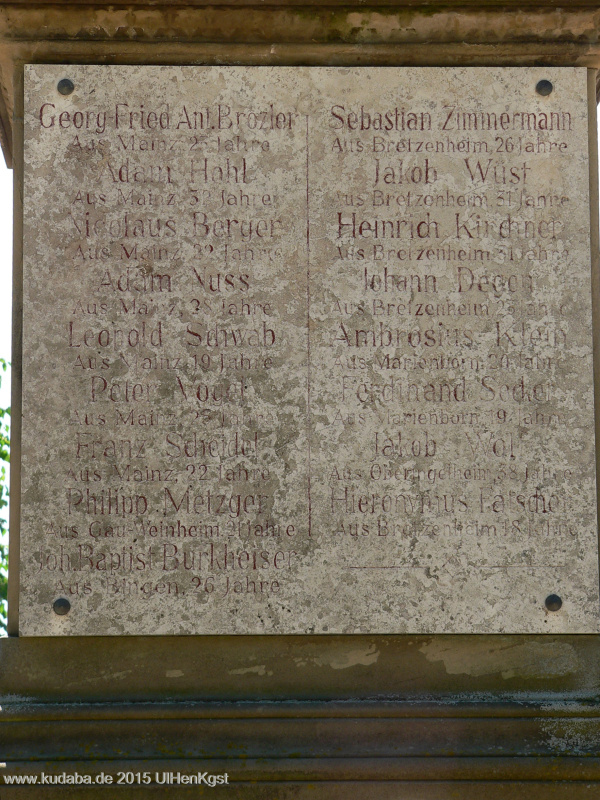 Georg-Fried. Ant. Brözler
Aus Mainz, Jahre
Adam Hohl
Aus Mainz, 32 Jahre
Nicolaus Berger
Aus Mainz, 32 Jahre
Adam Nuss
Aus Mainz, Jahre
Leopold Schwab
Aus Mainz, 19 Jahre
Peter
Aus Mainz, Jahre
Franz Scheidel
Aus Mainz, 22 Jahre
Philipp Metzger
Aus Gau-Weinheim, 21 Jahre
Joh. Baptist Burkheiser
Aus Bingen, 26 Jahre
Sebastian Zimmermann
Aus Bretzenheim, 26 Jahre
Jakob Wüst
Aus Bretzenheim, 31 Jahre
Heinrich Kirchner
Aus Bretzenheim, 31 Jahre
Johann Degen
Aus Bretzenheim, Jahre
Ambrosius Klein
Aus Marienborn, 20 Jahre
Ferdinand
Aus Marienborn, 19 Jahre
Jakob
Aus Oberingelheim, 38 Jahre
Hieronymus
Aus Bretzenheim, 18 Jahre
www.kudaba.de 2015 UlHenKgst